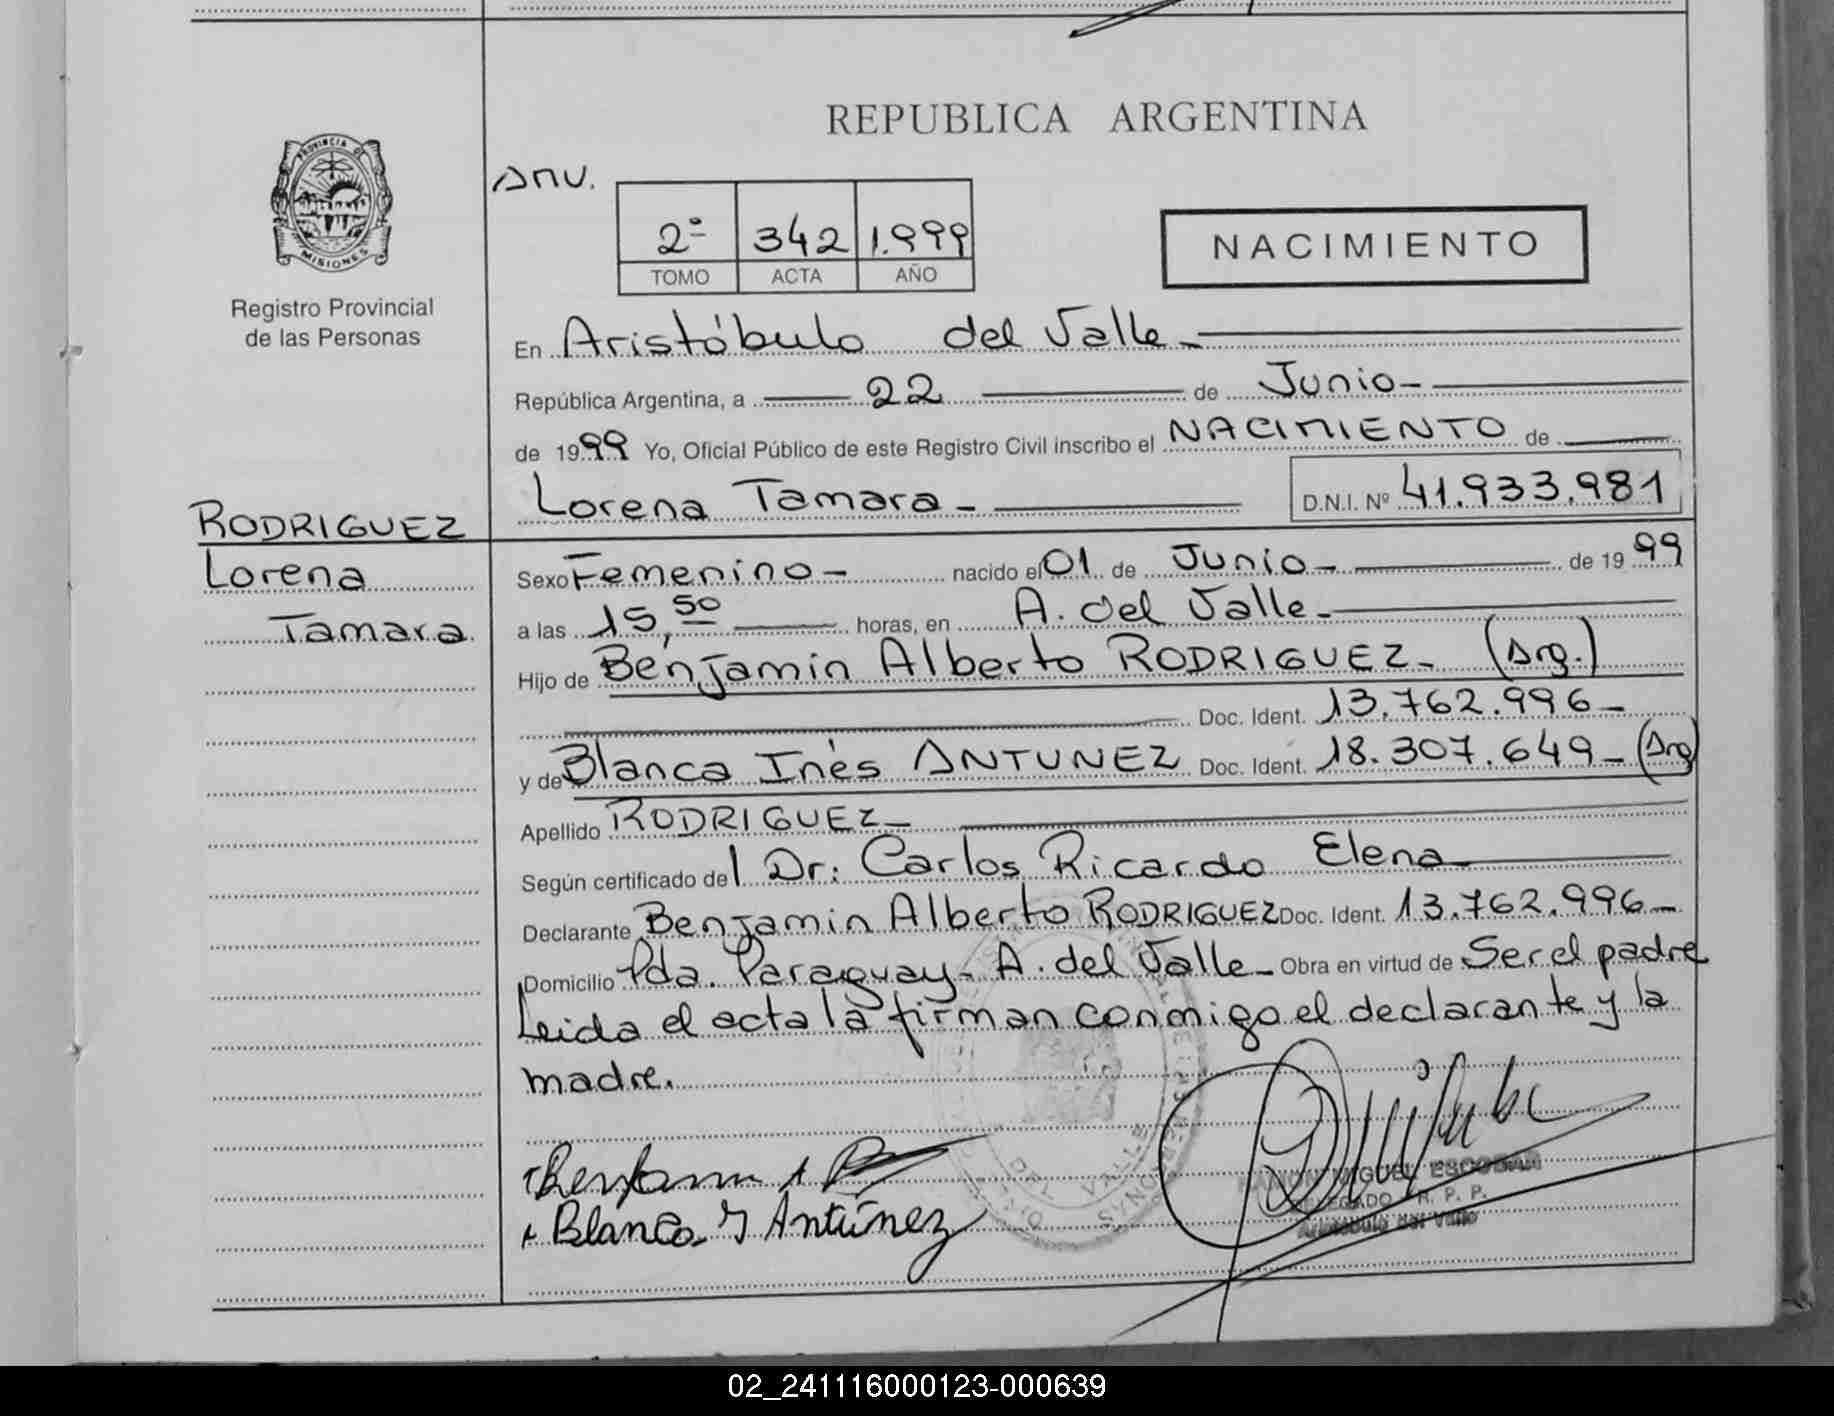 REPUBLICA ARGENTINA
PROVINCIA DE
MISIONES
Registro Provincial
de las Personas
2º 342 1.999
TOMO ACTA AÑO
NACIMIENTO
En Aristóbulo del Valle -
República Argentina, a 22 de Junio -
de 1999 Yo, Oficial Público de este Registro Civil inscribo el NACIMIENTO de
Lorena Tamara - D.N.I. Nº 41.933.981
RODRIGUEZ
Lorena
Tamara
Sexo Femenino - nacido el 01 de Junio - de 1999
a las 15,50 horas, en A. del Valle -
Hijo de Benjamin Alberto RODRIGUEZ - (Arg.)
Doc. Ident. 13.762.996 -
y de Blanca Inés ANTUNEZ Doc. Ident. 18.307.649 - (Arg)
Apellido RODRIGUEZ -
Según certificado del Dr: Carlos Ricardo Elena -
Declarante Benjamin Alberto RODRIGUEZ Doc. Ident. 13.762.996 -
Domicilio Pda. Paraguay - A. del Valle - Obra en virtud de Ser el padre
Leida el acta la firman conmigo el declarante y la
madre.
Benjamin A
Blanca I Antúnez
RAMON MIGUEL ESCOBAR
DELEGADO R. P. P.
Aristóbulo del Valle
DEL VALLE
02_241116000123-000639